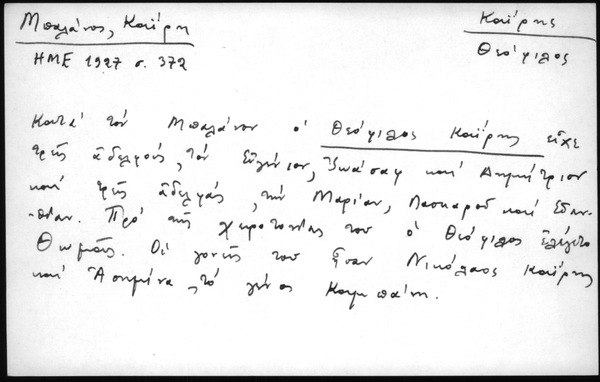 Μπαλάνος, Καΐρη
Καΐρης
ΗΜΕ 1927 σ. 372
Θεόφιλος
Κατά τόν Μπαλάνον ὁ Θεόφιλος Καΐρης εἶχε
τρεῖς ἀδελφούς, τόν Εὐγένιον, Ἰωάσαφ καί Δημήτριον
καί τρεῖς ἀδελφάς, τήν Μαρίαν, Λασκαροῦ καί Εὐαν-
θίαν. Πρό τῆς χειροτονίας του ὁ Θεόφιλος ἐλέγετο
Θωμᾶς. Οἱ γονεῖς του ἦσαν Νικόλαος Καΐρης
καί Ἀσημίνα, τό γένος Καμπάνη.